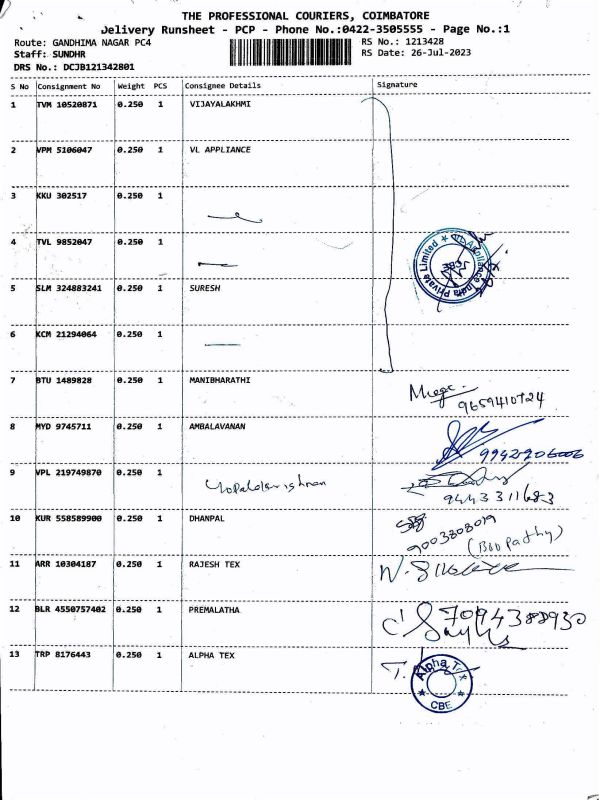 THE PROFESSIONAL COURIERS, COIMBATORE
Delivery Runsheet - PCP - Phone No.:0422-3505555 - Page No.:1
Route: GANDHIMA NAGAR PC4 RS No.: 1213428
Staff: SUNDHR RS Date: 26-Jul-2023
DRS No.: DCJB121342801
S No Consignment No Weight PCS Consignee Details Signature
1 TVM 10520871 0.250 1 VIJAYALAKHMI
2 VPM 5106047 0.250 1 VL APPLIANCE
3 KKU 302517 0.250 1
4 TVL 9852047 0.250 1
VL Appliance India Private Limited
5 SLM 324883241 0.250 1 SURESH
6 KCM 21294064 0.250 1
7 BTU 1489828 0.250 1 MANIBHARATHI
9659410724
8 MYD 9745711 0.250 1 AMBALAVANAN
9942906006
9 VPL 219749870 0.250 1 Gopalakrishnan
9443311683
10 KUR 558589900 0.250 1 DHANPAL
9003808019
(Boopathy)
11 ARR 10304187 0.250 1 RAJESH TEX
12 BLR 4550757402 0.250 1 PREMALATHA
7094388930
13 TRP 8176443 0.250 1 ALPHA TEX
Alpha Tex
CBE